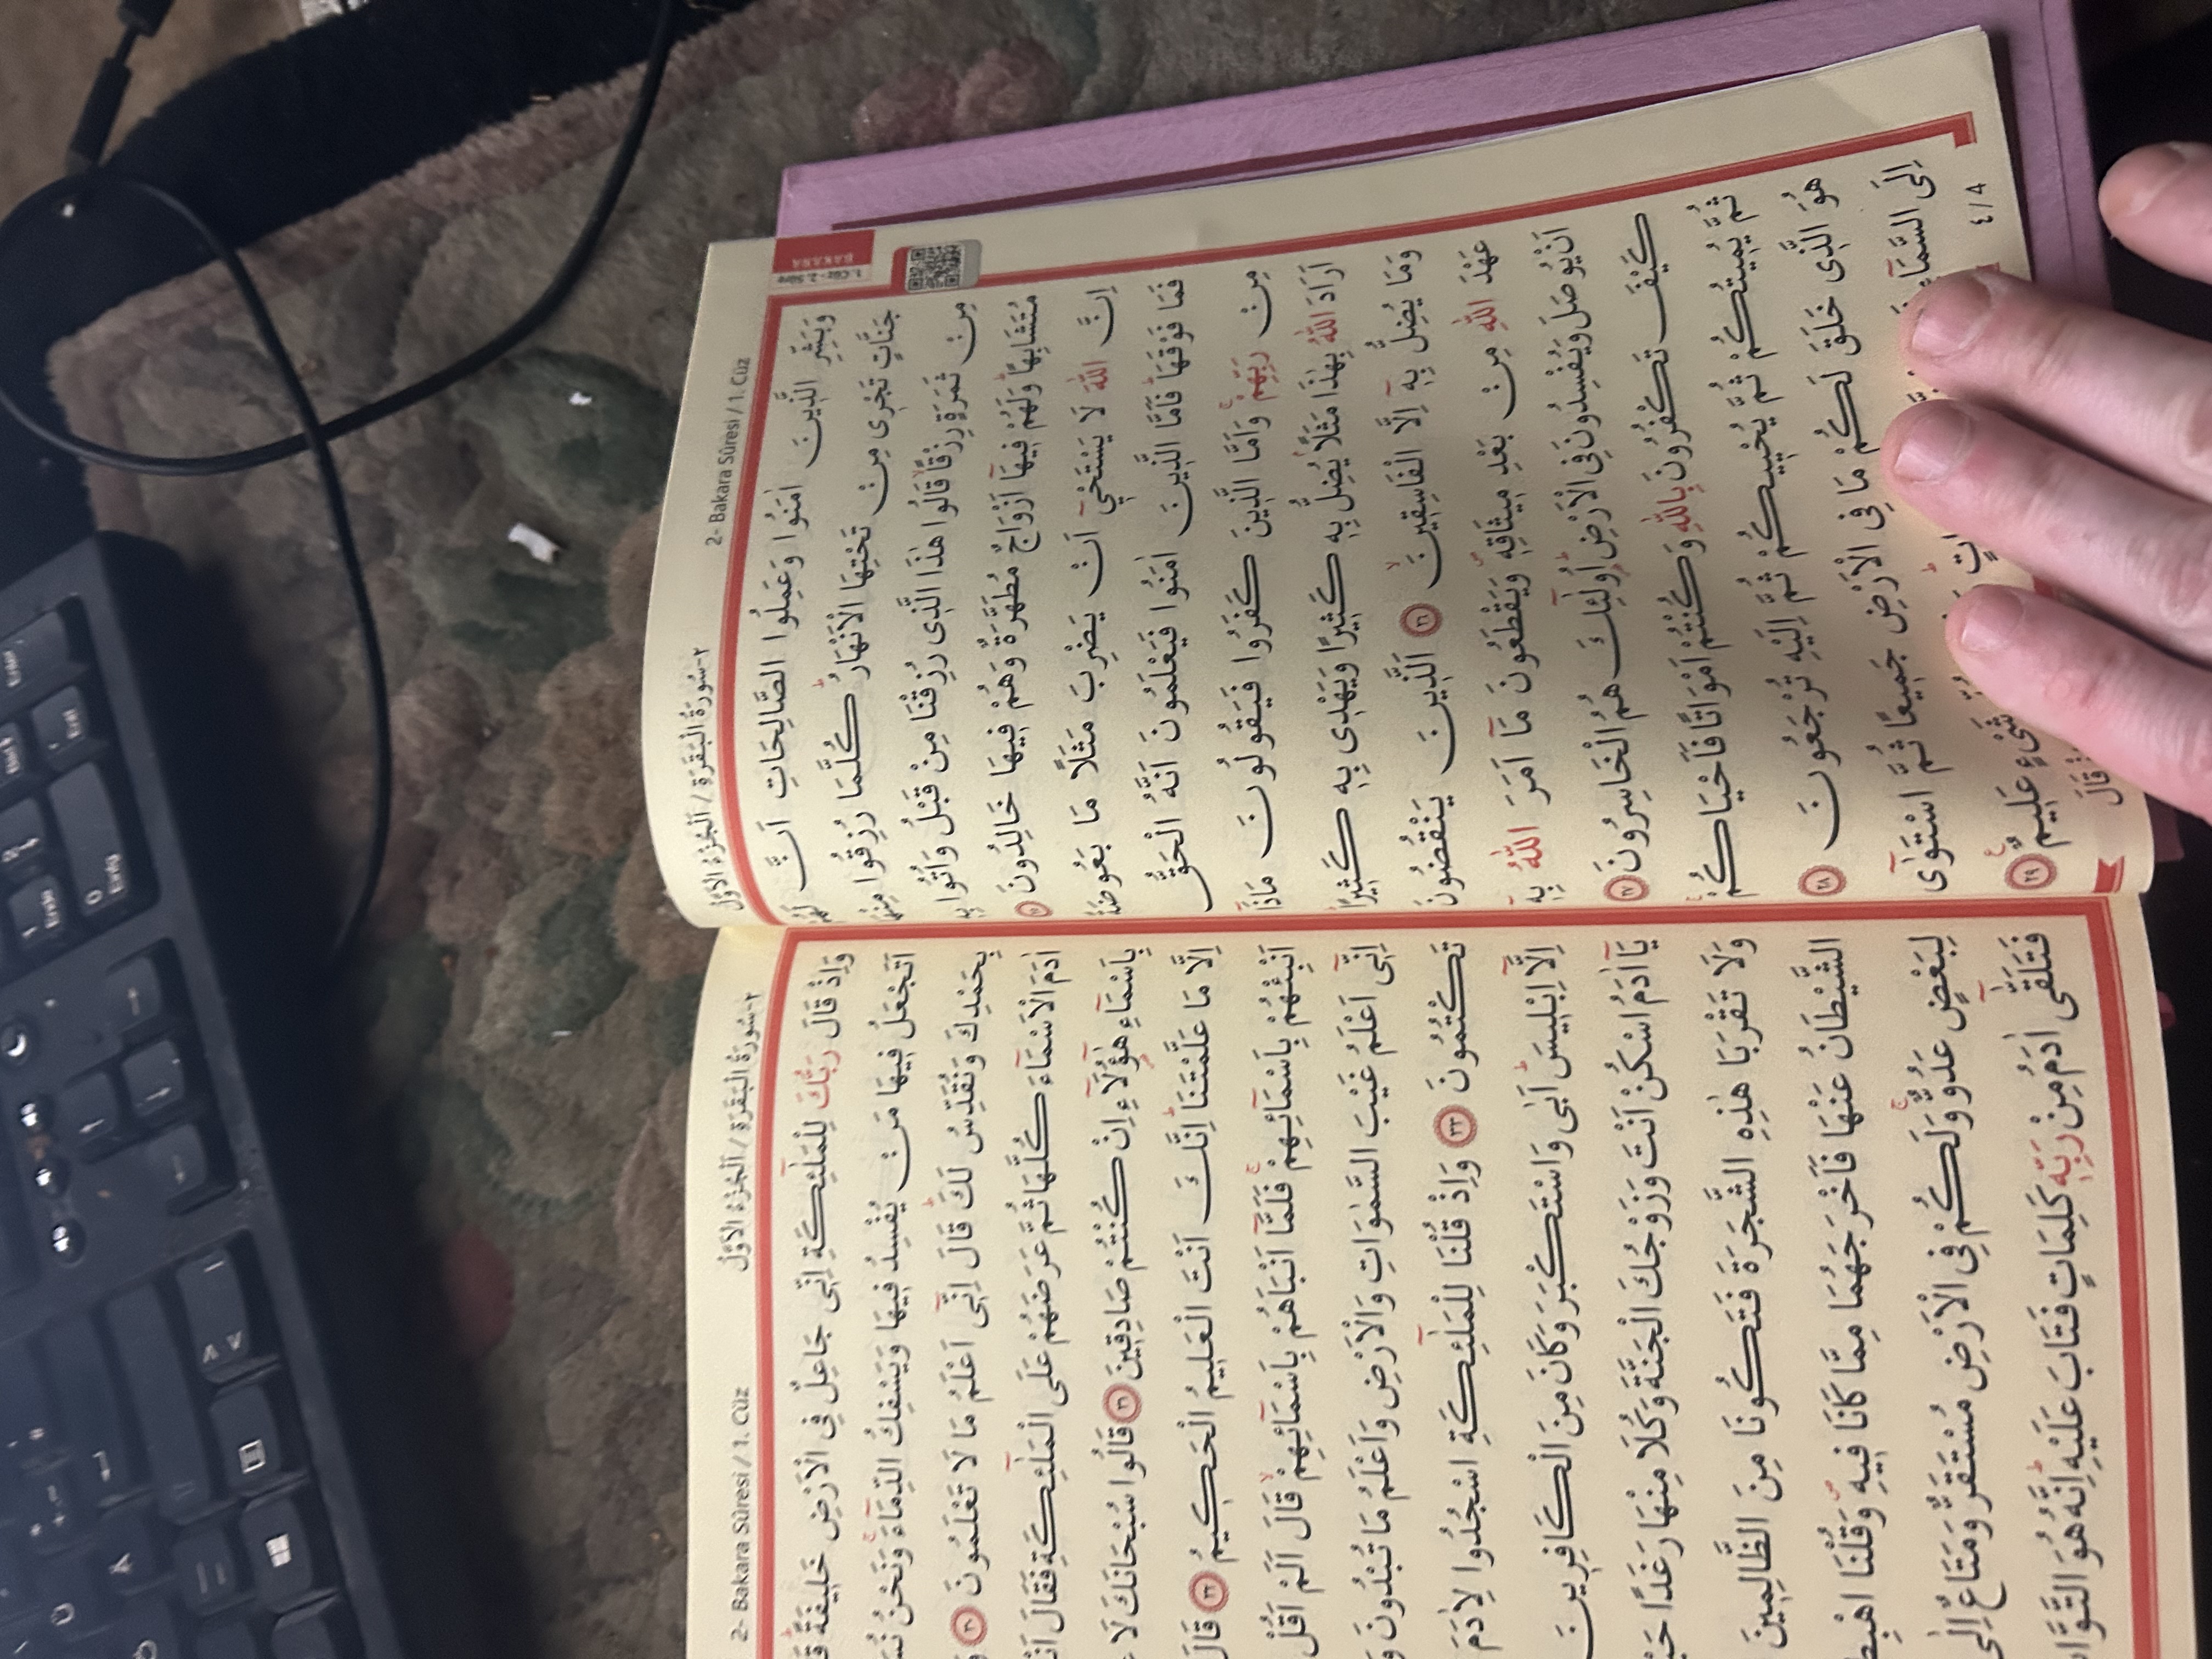 ٢-سُورَةُ الْبَقَرَةِ / اَلْجُزْءُ الْاَوَّلُ 2- Bakara Sûresi / 1. Cüz
BAKARA
1. Cüz - 2. Sûre
وَبَشِّرِ الَّذ۪ينَ اٰمَنُوا وَعَمِلُوا الصَّالِحَاتِ اَنَّ لَهُمْ
جَنَّاتٍ تَجْر۪ى مِنْ تَحْتِهَا الْاَنْهَارُۜ كُلَّمَا رُزِقُوا مِنْهَا
مِنْ ثَمَرَةٍ رِزْقًاۙ قَالُوا هٰذَا الَّذ۪ى رُزِقْنَا مِنْ قَبْلُ وَاُتُوا بِه۪
مُتَشَابِهًاۜ وَلَهُمْ ف۪يهَٓا اَزْوَاجٌ مُطَهَّرَةٌ وَهُمْ ف۪يهَا خَالِدُونَ ٢٥
اِنَّ اللّٰهَ لَا يَسْتَحْي۪ٓ اَنْ يَضْرِبَ مَثَلًا مَا بَعُوضَةً
فَمَا فَوْقَهَاۜ فَاَمَّا الَّذ۪ينَ اٰمَنُوا فَيَعْلَمُونَ اَنَّهُ الْحَقُّ
مِنْ رَبِّهِمْۚ وَاَمَّا الَّذ۪ينَ كَفَرُوا فَيَقُولُونَ مَاذَٓا
اَرَادَ اللّٰهُ بِهٰذَا مَثَلًاۘ يُضِلُّ بِه۪ كَث۪يرًا وَيَهْد۪ى بِه۪ كَث۪يرًاۜ
وَمَا يُضِلُّ بِه۪ٓ اِلَّا الْفَاسِق۪ينَۙ ٢٦ اَلَّذ۪ينَ يَنْقُضُونَ
عَهْدَ اللّٰهِ مِنْ بَعْدِ م۪يثَاقِه۪ۖ وَيَقْطَعُونَ مَٓا اَمَرَ اللّٰهُ بِه۪ٓ
اَنْ يُوصَلَ وَيُفْسِدُونَ فِى الْاَرْضِۜ اُو۬لٰٓئِكَ هُمُ الْخَاسِرُونَ ٢٧
كَيْفَ تَكْفُرُونَ بِاللّٰهِ وَكُنْتُمْ اَمْوَاتًا فَاَحْيَاكُمْۚ
ثُمَّ يُم۪يتُكُمْ ثُمَّ يُحْي۪يكُمْ ثُمَّ اِلَيْهِ تُرْجَعُونَ ٢٨
هُوَ الَّذ۪ى خَلَقَ لَكُمْ مَا فِى الْاَرْضِ جَم۪يعًا ثُمَّ اسْتَوٰٓى
اِلَى السَّمَٓاءِ شَىْءٍ عَل۪يمٌ۟ ٢٩
٤ / 4
٢-سُورَةُ الْبَقَرَةِ / اَلْجُزْءُ الْاَوَّلُ 2- Bakara Sûresi / 1. Cüz
وَاِذْ قَالَ رَبُّكَ لِلْمَلٰٓئِكَةِ اِنّ۪ى جَاعِلٌ فِى الْاَرْضِ خَل۪يفَةًۜ
اَتَجْعَلُ ف۪يهَا مَنْ يُفْسِدُ ف۪يهَا وَيَسْفِكُ الدِّمَٓاءَۚ وَنَحْنُ
بِحَمْدِكَ وَنُقَدِّسُ لَكَۜ قَالَ اِنّ۪ٓى اَعْلَمُ مَا لَا تَعْلَمُونَ ٣٠
اٰدَمَ الْاَسْمَٓاءَ كُلَّهَا ثُمَّ عَرَضَهُمْ عَلَى الْمَلٰٓئِكَةِ فَقَالَ
بِاَسْمَٓاءِ هٰٓؤُ۬لَٓاءِ اِنْ كُنْتُمْ صَادِق۪ينَ ٣١ قَالُوا سُبْحَانَكَ لَا
اِلَّا مَا عَلَّمْتَنَاۜ اِنَّكَ اَنْتَ الْعَل۪يمُ الْحَك۪يمُ ٣٢ قَالَ
اَنْبِئْهُمْ بِاَسْمَٓائِهِمْۚ فَلَمَّٓا اَنْبَاَهُمْ بِاَسْمَٓائِهِمْۙ قَالَ اَلَمْ اَقُلْ
اِنّ۪ٓى اَعْلَمُ غَيْبَ السَّمٰوَاتِ وَالْاَرْضِ وَاَعْلَمُ مَا تُبْدُونَ
تَكْتُمُونَ ٣٣ وَاِذْ قُلْنَا لِلْمَلٰٓئِكَةِ اسْجُدُوا لِاٰدَمَ
اِلَّٓا اِبْل۪يسَۜ اَبٰى وَاسْتَكْبَرَ وَكَانَ مِنَ الْكَافِر۪ينَ
يَٓا اٰدَمُ اسْكُنْ اَنْتَ وَزَوْجُكَ الْجَنَّةَ وَكُلَا مِنْهَا رَغَدًا
وَلَا تَقْرَبَا هٰذِهِ الشَّجَرَةَ فَتَكُونَا مِنَ الظَّالِم۪ينَ
الشَّيْطَانُ عَنْهَا فَاَخْرَجَهُمَا مِمَّا كَانَا ف۪يهِۖ وَقُلْنَا
لِبَعْضٍ عَدُوٌّۚ وَلَكُمْ فِى الْاَرْضِ مُسْتَقَرٌّ وَمَتَاعٌ اِلٰى
فَتَلَقّٰٓى اٰدَمُ مِنْ رَبِّه۪ كَلِمَاتٍ فَتَابَ عَلَيْهِۜ اِنَّهُ هُوَ